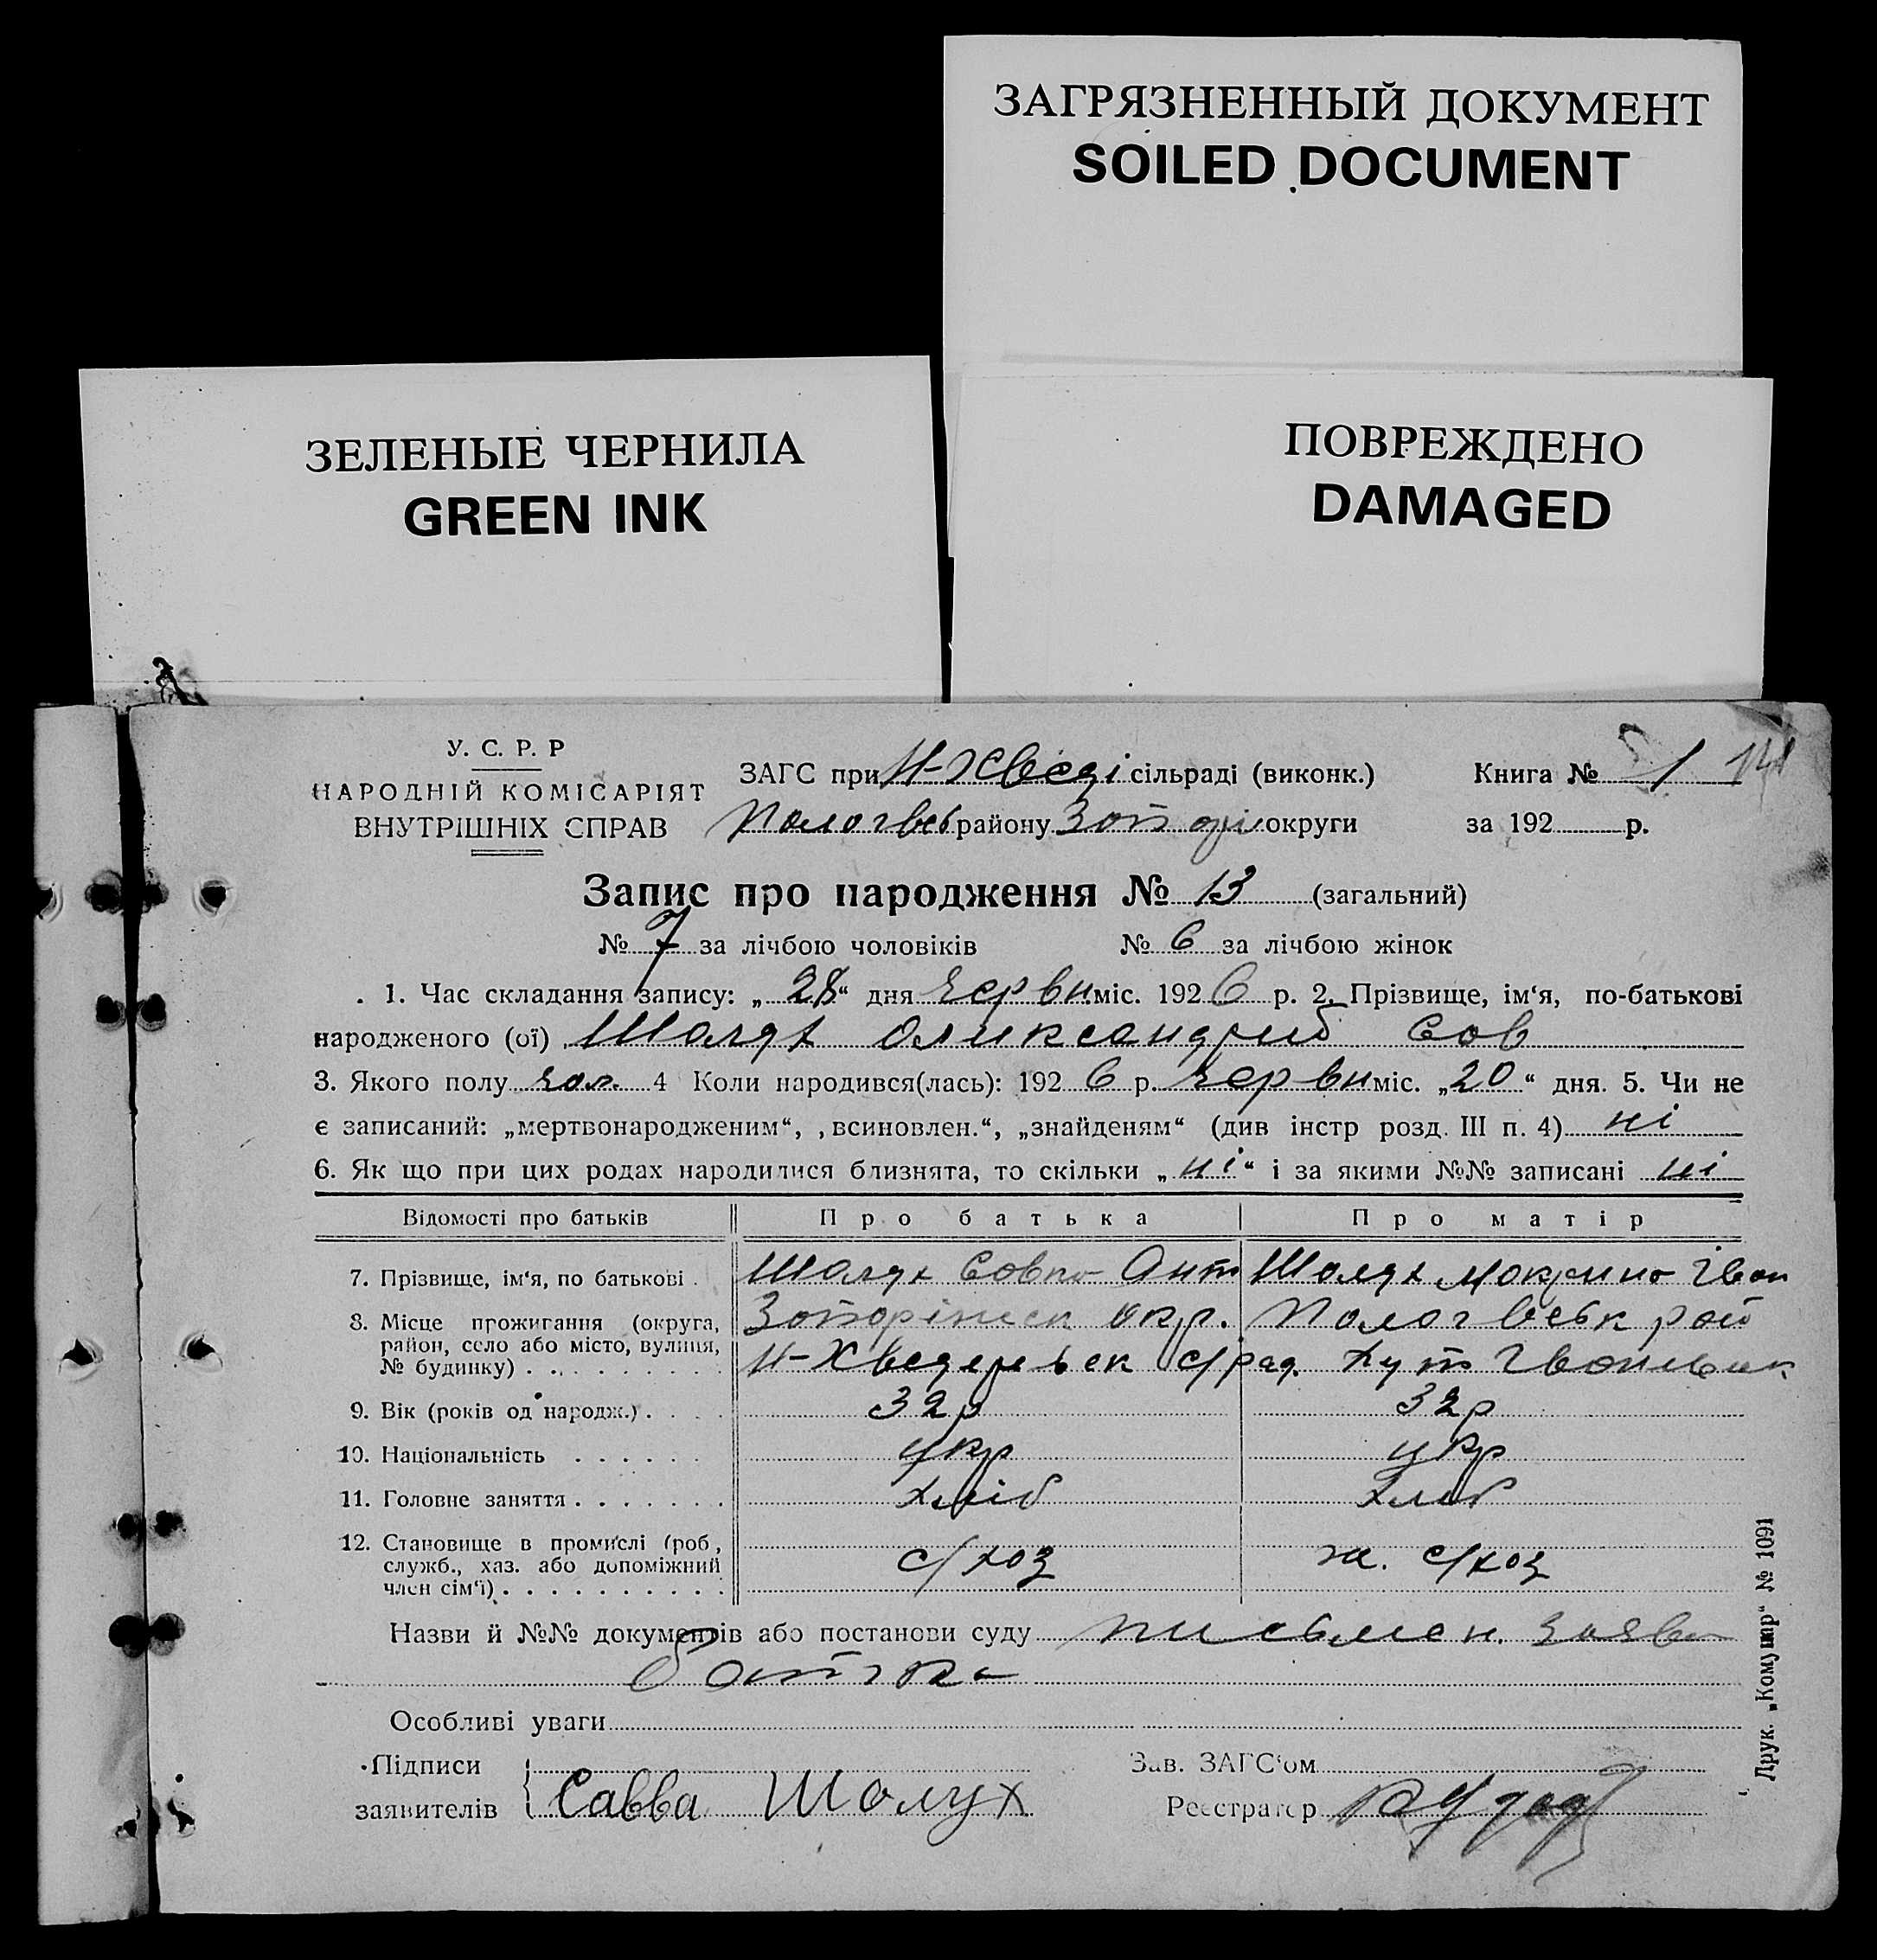 ЗАГРЯЗНЕННЫЙ ДОКУМЕНТ
SOILED DOCUMENT
ЗЕЛЕНЫЕ ЧЕРНИЛА
GREEN INK
ПОВРЕЖДЕНО
DAMAGED
У. С. Р. Р
НАРОДНІЙ КОМІСАРІЯТ
ВНУТРІШНІХ СПРАВ
ЗАГС при сільраді (виконк.)
району округи
Книга № 1
за 192 р.
Запис про народження № 13 (загальний)
№ 7 за лічбою чоловіків № 6 за лічбою жінок
1. Час складання запису: „28“ дня червн міс. 1926 р. 2. Прізвище, ім‘я, по-батькові
народженого (ої) Шалух Сов
3. Якого полу чол. 4 Коли народився(лась): 1926 р. червн міс. „20“ дня. 5. Чи не
є записаний: „мертвонародженим“, „всиновлен.“, „знайденям“ (див інстр розд. III п. 4) ні
6. Як що при цих родах народилися близнята, то скільки „ні“ і за якими №№ записані ні
Відомості про батьків Про батька Про матір
7. Прізвище, ім‘я, по батькові Шалух Ант Шалух Іван
8. Місце прожигання (округа, окр. рай
район, село або місто, вулиця, с/рад. хут
№ будинку)
9. Вік (років од народж.) 32р 32р
10. Національність укр укр
11. Головне заняття хліб хліб
12. Становище в промислі (роб,
служб., хаз. або допоміжний с/хоз с/хоз
член сім‘ї)
Назви й №№ документів або постанови суду письмен. заява
батька
Особливі уваги
Підписи
заявителів Савва Шолух
Зав. ЗАГС‘ом
Реєстратор
Друк. „Комунар“ № 1091